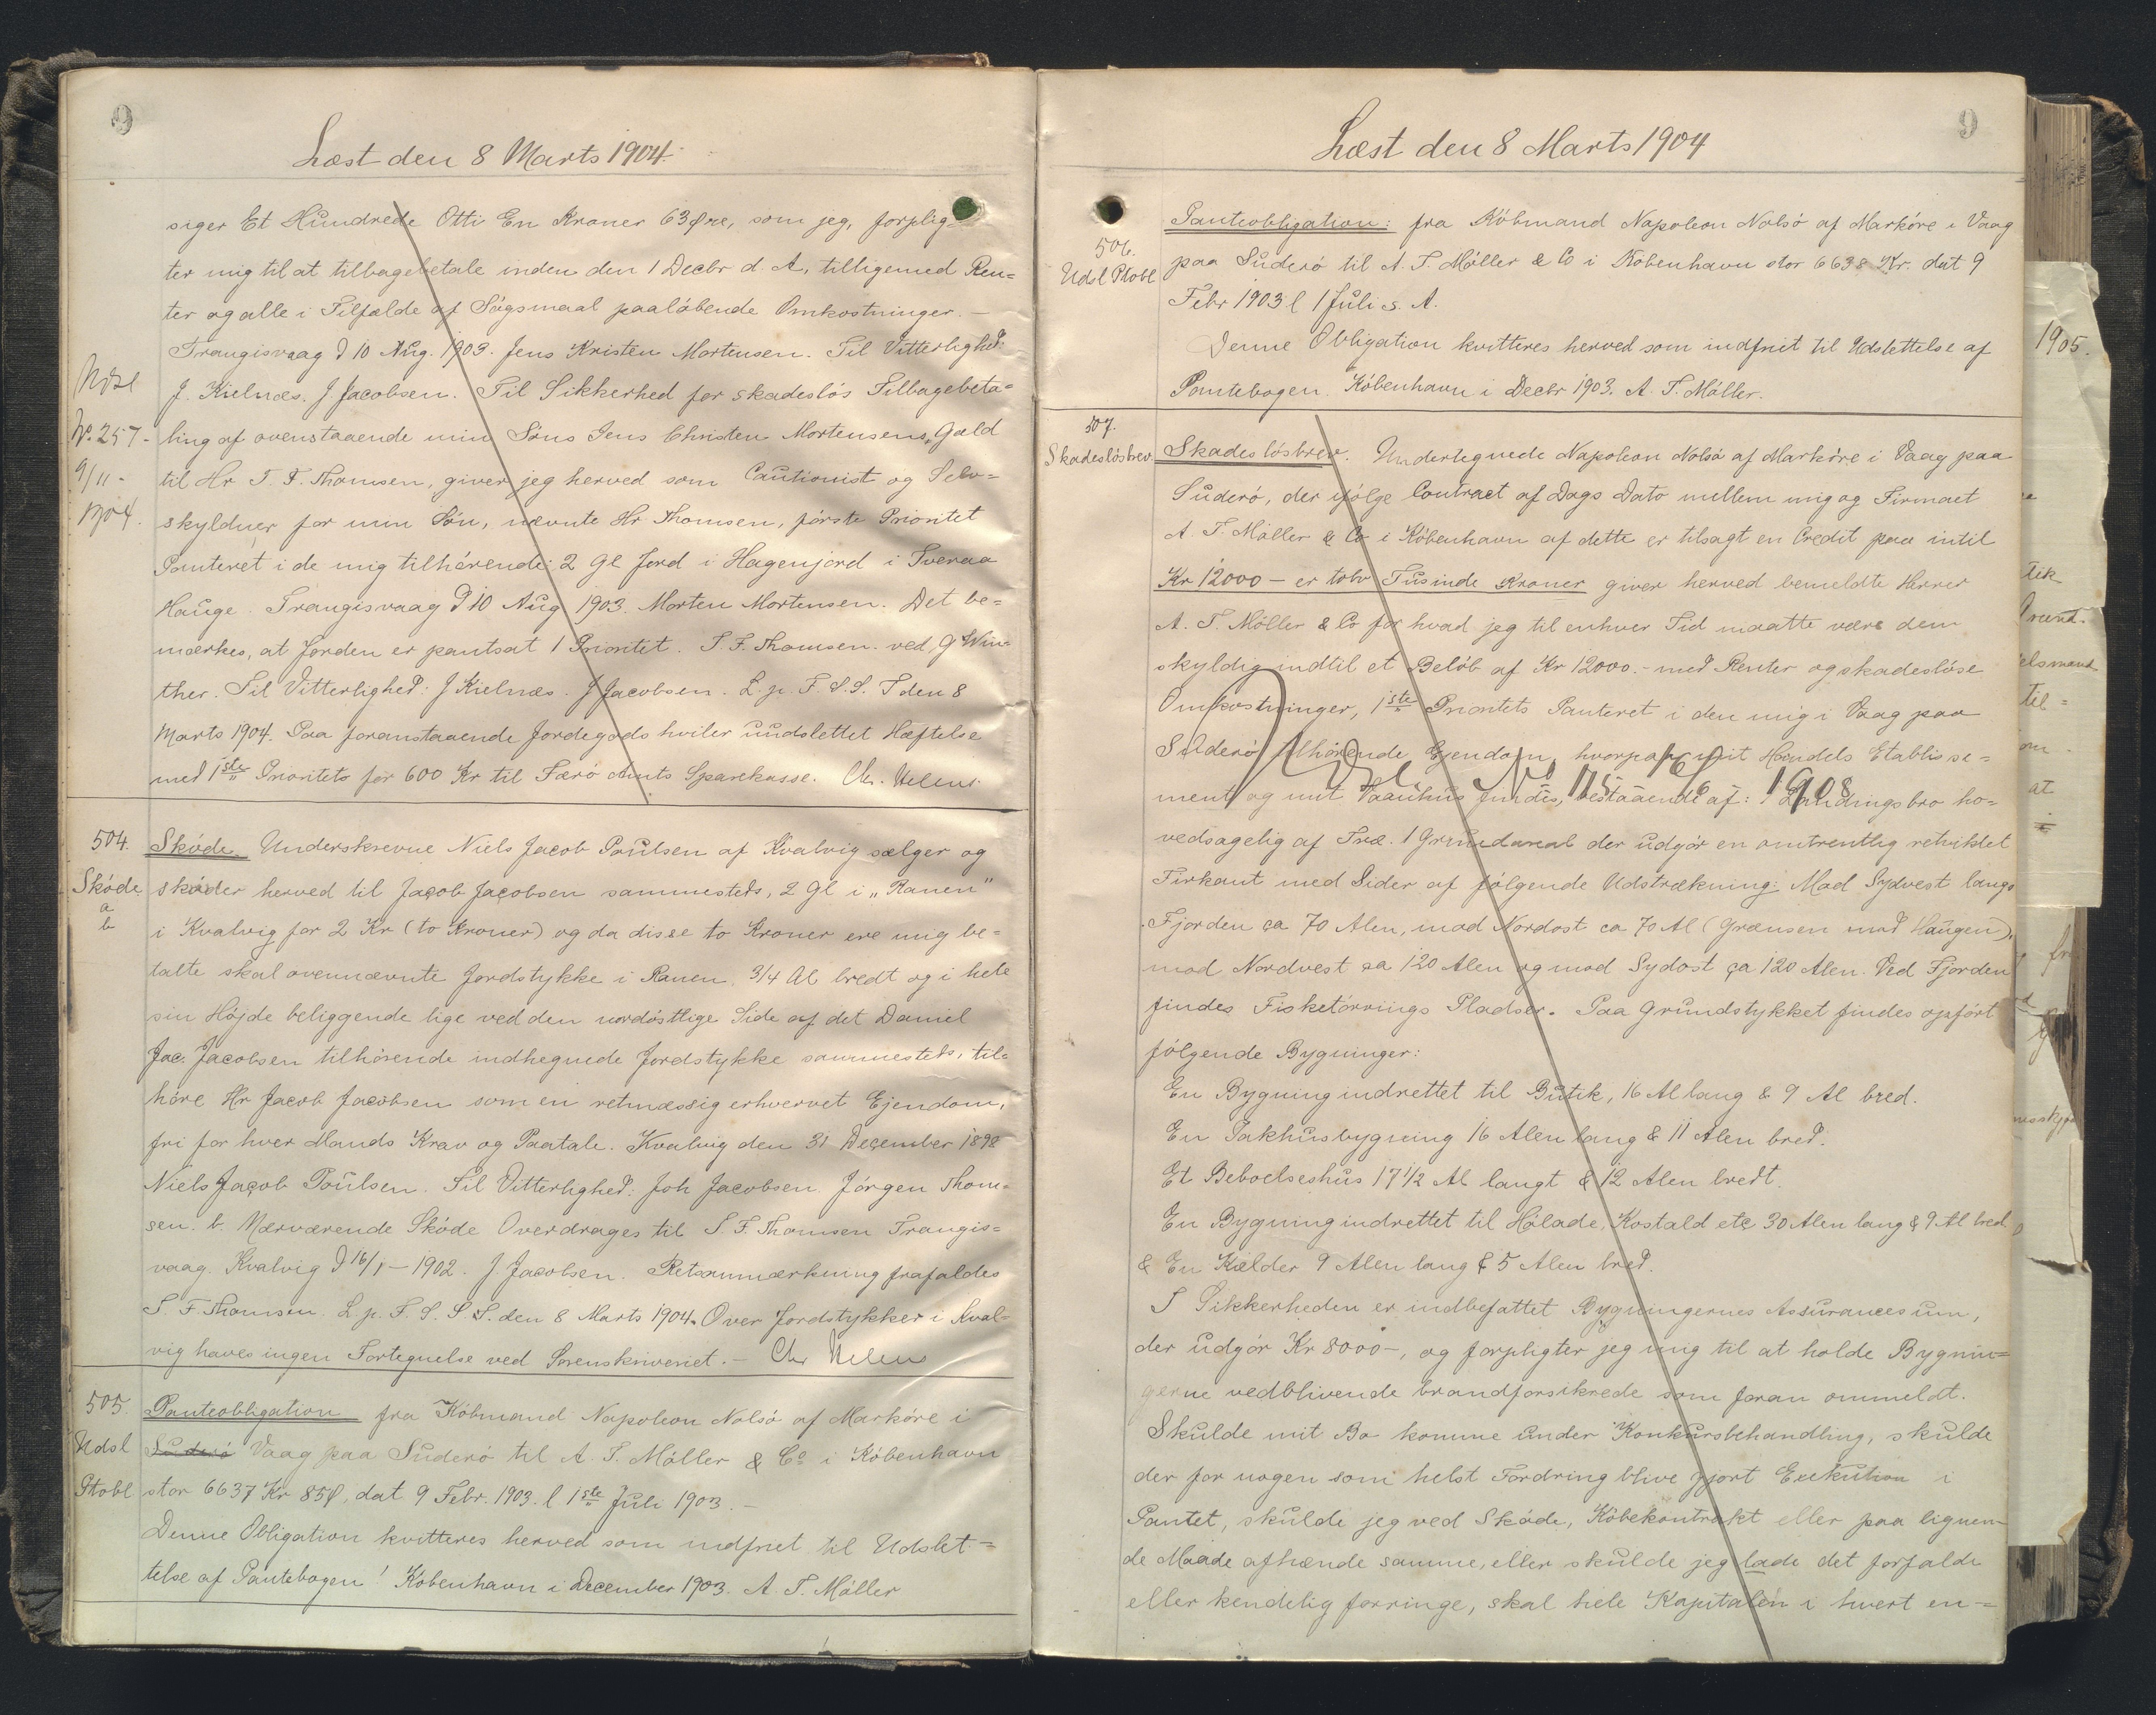 9
Læst den 8 Marts 1904.
siger Et Hundrede Otti En Kroner 63 Øre, som jeg, forplig=
ter mig til at tilbagebetale inden den 1 Decbr d. A, tilligemed Ren=
ter og alle i Tilfælde af Sögsmaal paalöbende Omkostninger. —
Trangisvaag d 10 Aug. 1903. Jens Kristen Mortensen. Til Vitterlighed:
J. Kielnæs. J. Jacobsen. Til Sikkerhed for skadeslös Tilbagebeta=
ling af ovenstaaende min Söns Jens Christen Mortensens, Gæld
til Hr T. F. Thomsen, giver jeg herved som Cautionist og Selv=
skyldner for min Sön, nævnte Hr. Thomsen, förste Prioritet
Panteret i de mig tilhörende: 2 Gl Jord i Hagenjord i Tveraa
Hauge. Trangisvaag d 10 Aug 1903. Morten Mortensen. Det be=
mærkes, at Jorden er pantsat 1 Prioritet. T. F. Thomsen. ved, G Win=
ther. Til Vitterlighed: J Kielnæs. J Jacobsen. L. p. F. S. S. T den 8
Marts 1904. Paa foranstaaende Jordegods hviler uudslettet Hæftelse
med 1ste Prioritets for 600 Kr til Færö Amts Sparekasse.
Udsl
No. 257-
9/11 -
1904.
504.
Skóde
a
b
Skóde. Underskrevne Niels Jacob Poulsen af Kvalvig sælger og
skóder herved til Jacob Jacobsen sammesteds, 2 Gl i „Ranen"
i Kvalvig for 2 Kr (to Kroner) og da disse to Kroner ere mig be=
talte skal ovennævnte Jordstykke i Ranen, 3/4 Al bredt og i hele
sin Höjde beliggende lige ved den nordöstlige Side af det Daniel
Jac. Jacobsen tilhörende indhegnede Jordstykke sammesteds, til=
höre Hr Jacob Jacobsen som en retmæssig erhvervet Ejendom,
fri for hver Mands Krav og Paatale. Kvalvig den 31 December 1898
Niels Jacob Poulsen. Til Vitterlighed: Joh Jacobsen. Jörgen Thom=
sen. b. Nærværende Skóde Overdrages til T. F. Thomsen Trangis=
vaag. Kvalvig d 16/1 - 1902. J. Jacobsen. Retsanmærkning frafaldes
T. F Thomsen. L. p. F. S. S. T. den 8 Marts 1904. Over Jordstykker i Kval=
vig haves ingen Fortegnelse ved Sorenskriveriet. —
505.
Udsl
Ptobl
Panteobligation fra Köbmand Napoleon Nolsö af Marköre i
Suderö Vaag paa Suderö til A. T. Möller & Co i Köbenhavn
stor 6637 Kr 85 Ø, dat 9 Febr. 1903. l 1ste Juli 1903. —
Denne Obligation kvitteres herved som indfriet til Udslet=
telse af Pantebogen! Köbenhavn i December 1903. A. T. Möller
9
Læst den 8 Marts 1904
506.
Udsl Ptobl
Panteobligation: fra Köbmand Napoleon Nolsö af Marköre i Vaag
paa Suderö til A. T. Möller & Co i Köbenhavn stor 6638 Kr. dat 9
Febr 1903 l 1 Juli s. A.
Denne Obligation kvitteres herved som indfriet til Udslettelse af
Pantebogen. Köbenhavn i Decbr 1903. A. T. Möller.
507.
Skadeslösbrev.
Skadeslösbrev. Undertegnede Napoleon Nolsö af Marköre i Vaag paa
Suderö, der ifölge Contract af Dags Dato mellem mig og Firmaet
A. T. Möller & Co i Köbenhavn af dette er tilsagt en Credit paa intil
Kr 12000 - er tolv Tusinde Kroner giver herved bemeldte Herrer
A. T. Möller & Co for hvad jeg til enhver Tid maatte være dem
skyldig indtil et Belöb af Kr 12000. - med Renter og skadeslöse
Omkostninger, 1ste Prioritets Panteret i den mig i Vaag paa
Suderö tilhörende Ejendom, hvorpaa mit Handels Etablisse=
ment og mit Vaanhus findes, bestaaende af: 1 Landingsbro ho=
Udsl No 175 16/6 1908
vedsagelig af Træ. 1 Grundareal der udgör en omtrentlig retviklet
Firkant med Sider af fölgende Udstrækning: Mod Sydvest langs
Fjorden ca 70 Alen, mod Nordost ca 70 Al (Grænsen mod Haugen),
mod Nordvest ca 120 Alen og mod Sydost ca 120 Alen. Ved Fjorden
findes Fisketörrings Pladser. Paa Grundstykket findes opfört
fölgende Bygninger:
En Bygning indrettet til Butik, 16 Al lang & 9 Al bred.
En Pakhusbygning 16 Alen lang & 11 Alen bred.
Et Beboelseshus 17 1/2 Al langt & 12 Alen bredt.
En Bygning indrettet til Hölade, Kostald etc 30 Alen lang & 9 Al bred
& En Kælder 9 Alen lang & 5 Alen bred.
I Sikkerheden er indbefattet Bygningernes Assurancesum,
der udgör Kr 8000 -, og forpligter jeg mig til at holde Bygnin=
gerne vedblivende brandforsikrede som foran ommeldt.
Skulde mit Bo komme under Konkursbehandling, skulde
der for nogen som helst Fordring blive gjort Exekution i
Pantet, skulde jeg ved Skóde, Köbekontrakt eller paa lignen=
de Maade afhænde samme, eller skulde jeg lade det forfalde
eller kendelig forringe, skal hele Kapitalen i hvert en=
1905.